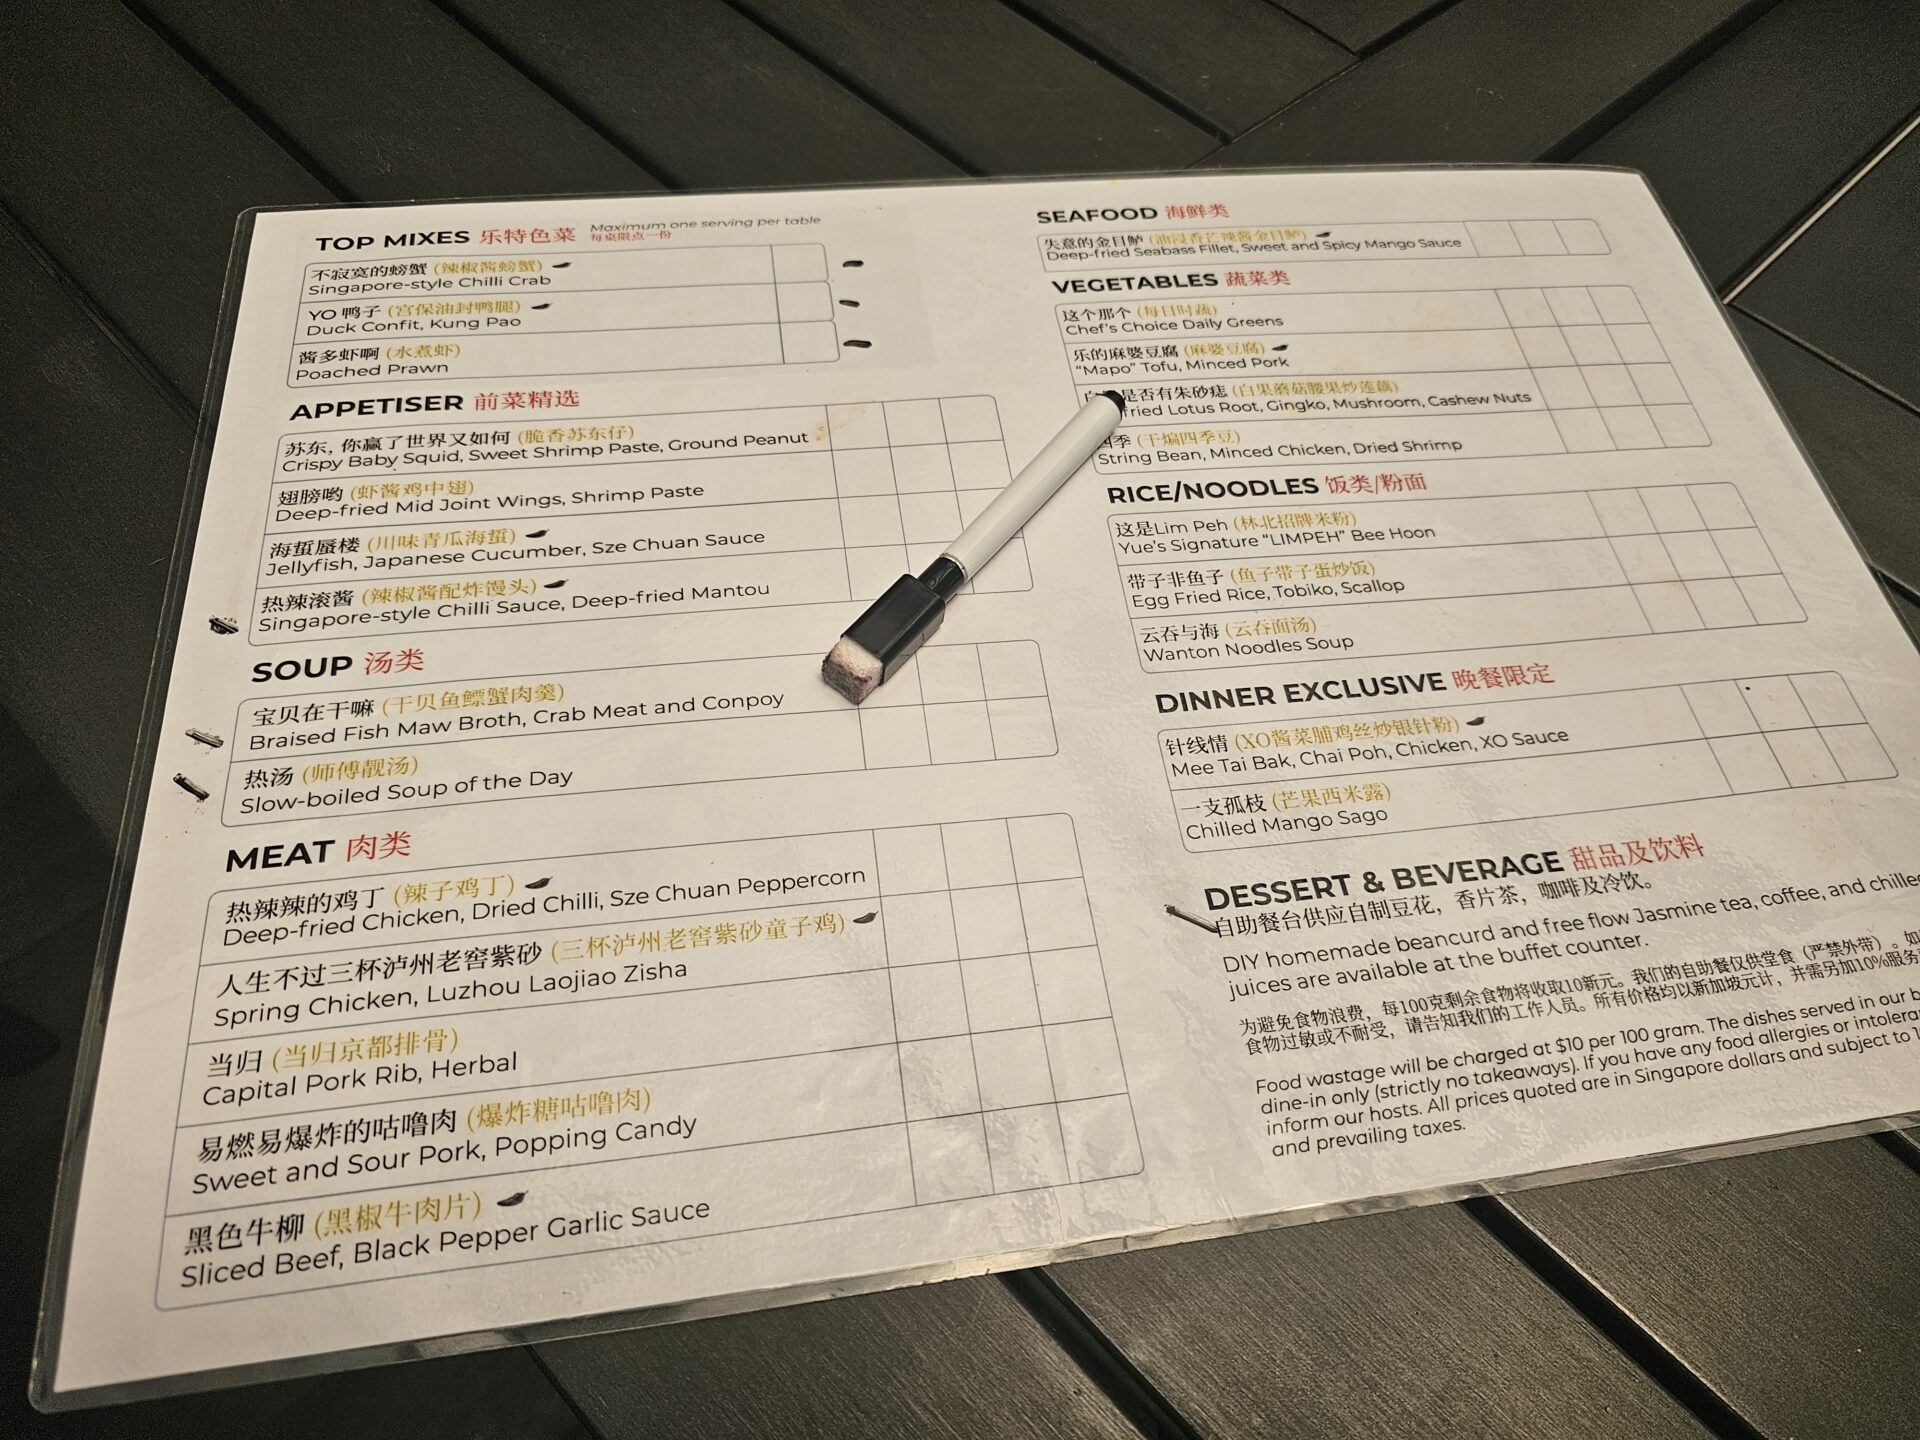 TOP MIXES 乐特色菜
Maximum one serving per table
每桌限点一份
不寂寞的螃蟹 (辣椒酱螃蟹)
Singapore-style Chilli Crab
YO 鸭子 (宫保油封鸭腿)
Duck Confit, Kung Pao
酱多虾啊 (水煮虾)
Poached Prawn
APPETISER 前菜精选
苏东, 你赢了世界又如何 (脆香苏东仔)
Crispy Baby Squid, Sweet Shrimp Paste, Ground Peanut
翅膀哟 (虾酱鸡中翅)
Deep-fried Mid Joint Wings, Shrimp Paste
海蜇蜃楼 (川味青瓜海蜇)
Jellyfish, Japanese Cucumber, Sze Chuan Sauce
热辣滚酱 (辣椒酱配炸馒头)
Singapore-style Chilli Sauce, Deep-fried Mantou
SOUP 汤类
宝贝在干嘛 (干贝鱼鳔蟹肉羹)
Braised Fish Maw Broth, Crab Meat and Conpoy
热汤 (师傅靓汤)
Slow-boiled Soup of the Day
MEAT 肉类
热辣辣的鸡丁 (辣子鸡丁)
Deep-fried Chicken, Dried Chilli, Sze Chuan Peppercorn
人生不过三杯泸州老窖紫砂 (三杯泸州老窖紫砂童子鸡)
Spring Chicken, Luzhou Laojiao Zisha
当归 (当归京都排骨)
Capital Pork Rib, Herbal
易燃易爆炸的咕噜肉 (爆炸糖咕噜肉)
Sweet and Sour Pork, Popping Candy
黑色牛柳 (黑椒牛肉片)
Sliced Beef, Black Pepper Garlic Sauce
SEAFOOD 海鲜类
失意的金目鲈 (油浸香芒辣酱金目鲈)
Deep-fried Seabass Fillet, Sweet and Spicy Mango Sauce
VEGETABLES 蔬菜类
这个那个 (每日时蔬)
Chef's Choice Daily Greens
乐的麻婆豆腐 (麻婆豆腐)
"Mapo" Tofu, Minced Pork
是否有朱砂痣 (白果蘑菇腰果炒莲藕)
fried Lotus Root, Gingko, Mushroom, Cashew Nuts
四季 (干煸四季豆)
String Bean, Minced Chicken, Dried Shrimp
RICE/NOODLES 饭类/粉面
这是Lim Peh (林北招牌米粉)
Yue's Signature "LIMPEH" Bee Hoon
带子非鱼子 (鱼子带子蛋炒饭)
Egg Fried Rice, Tobiko, Scallop
云吞与海 (云吞面汤)
Wanton Noodles Soup
DINNER EXCLUSIVE 晚餐限定
针线情 (XO酱菜脯鸡丝炒银针粉)
Mee Tai Bak, Chai Poh, Chicken, XO Sauce
一支孤枝 (芒果西米露)
Chilled Mango Sago
DESSERT & BEVERAGE 甜品及饮料
自助餐台供应自制豆花，香片茶，咖啡及冷饮。
DIY homemade beancurd and free flow Jasmine tea, coffee, and chilled
juices are available at the buffet counter.
为避免食物浪费，每100克剩余食物将收取10新元。我们的自助餐仅供堂食（严禁外带）。如
食物过敏或不耐受，请告知我们的工作人员。所有价格均以新加坡元计，并需另加10%服务
Food wastage will be charged at $10 per 100 gram. The dishes served in our
dine-in only (strictly no takeaways). If you have any food allergies or
inform our hosts. All prices quoted are in Singapore dollars and subject to
and prevailing taxes.